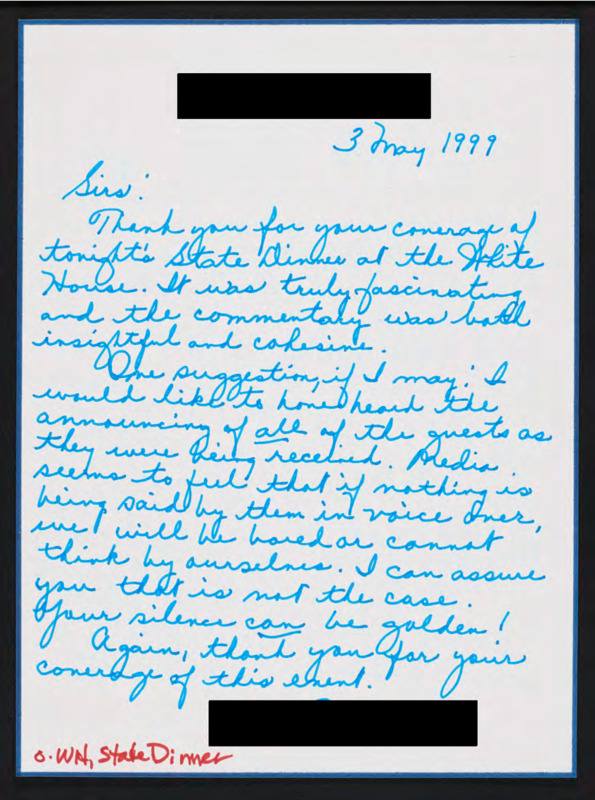 3 May 1999
Sirs:
Thank you for your coverage of
tonight's State Dinner at the White
House. It was truly fascinating
and the commentary was both
insightful and cohesive.
One suggestion, if I may: I
would like to have heard the
announcing of all of the guests as
they were being received. Media
seems to feel that if nothing is
being said by them in voice over,
we will be bored or cannot
think by ourselves. I can assure
you that is not the case.
Your silence can be golden!
Again, thank you for your
coverage of this event.
o. WH, State Dinner